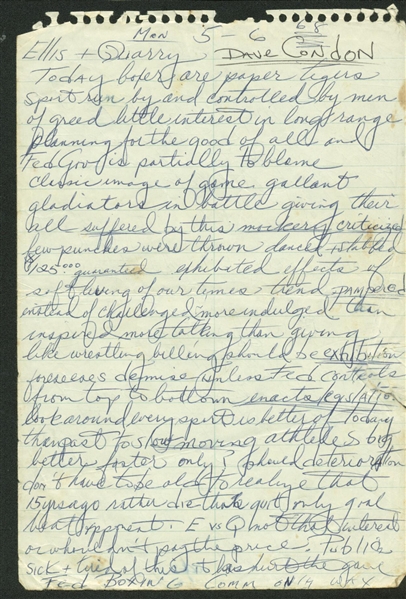 Mon 5-6 68
Ellis + Quarry DAVE CONDON
Today boxers are paper tigers
sport run by and controlled by men
of greed little interest in long range
planning for the good of all and
Fed Gov is partially to blame
classic image of game gallant
gladiators in battle giving their
all suffered by this mockery criticized
few punches were thrown danced + stabbed
$125,000 guaranteed exhibited effects of
soft living of our times trend pampered
instead of challenged more indulged than
inspired more talking than giving
like wrestling billing should be exhibition
foresees demise unless Fed controls
from top to bottom enacts legislation
look around every sport is better today
than past fo slow moving athletes big
better faster only ? showed deterioration
don't have to be old to realize that
15 yrs ago rather die than quit only goal
beat opponent. E vs Q not that interested
or wouldn't pay the price. Public
sick + tired of this it has hurt the game
Fed BOXING COMM only way